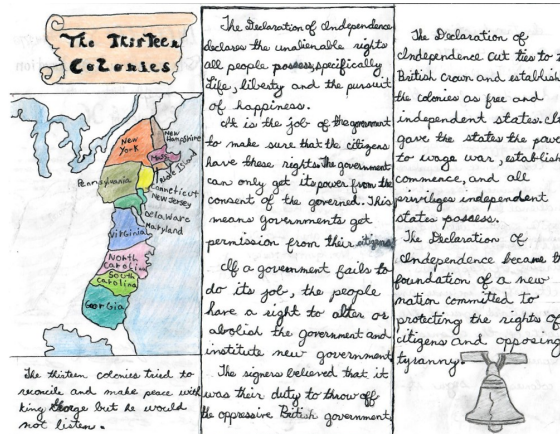 The Thirteen
Colonies
New
Hampshire
New
York
Mass
Rhode Island
Connecticut
Pennsylvania
New Jersey
Delaware
Maryland
Virginia
North
Carolina
South
Carolina
Georgia
The thirteen colonies tried to
reconcile and make peace with
king George but he would
not listen.
The Declaration of Independence
declares the unalienable rights
all people possess, specifically
life, liberty and the pursuit
of happiness.
It is the job of the government
to make sure that the citizens
have these rights. The government
can only get its power from the
consent of the governed. This
means governments get
permission from their citizens
If a government fails to
do its job, the people
have a right to alter or
abolish the government and
institute new government
The signers believed that it
was their duty to throw off
the oppressive British government.
The Declaration of
Independence cut ties to
British crown and establish
the colonies as free and
independent states.
gave the states the
to wage war, establish
commence, and all
privileges independent
states possess.
The Declaration of
Independence became
foundation of a new
nation committed to
protecting the rights of
citizens and opposing
tyranny.